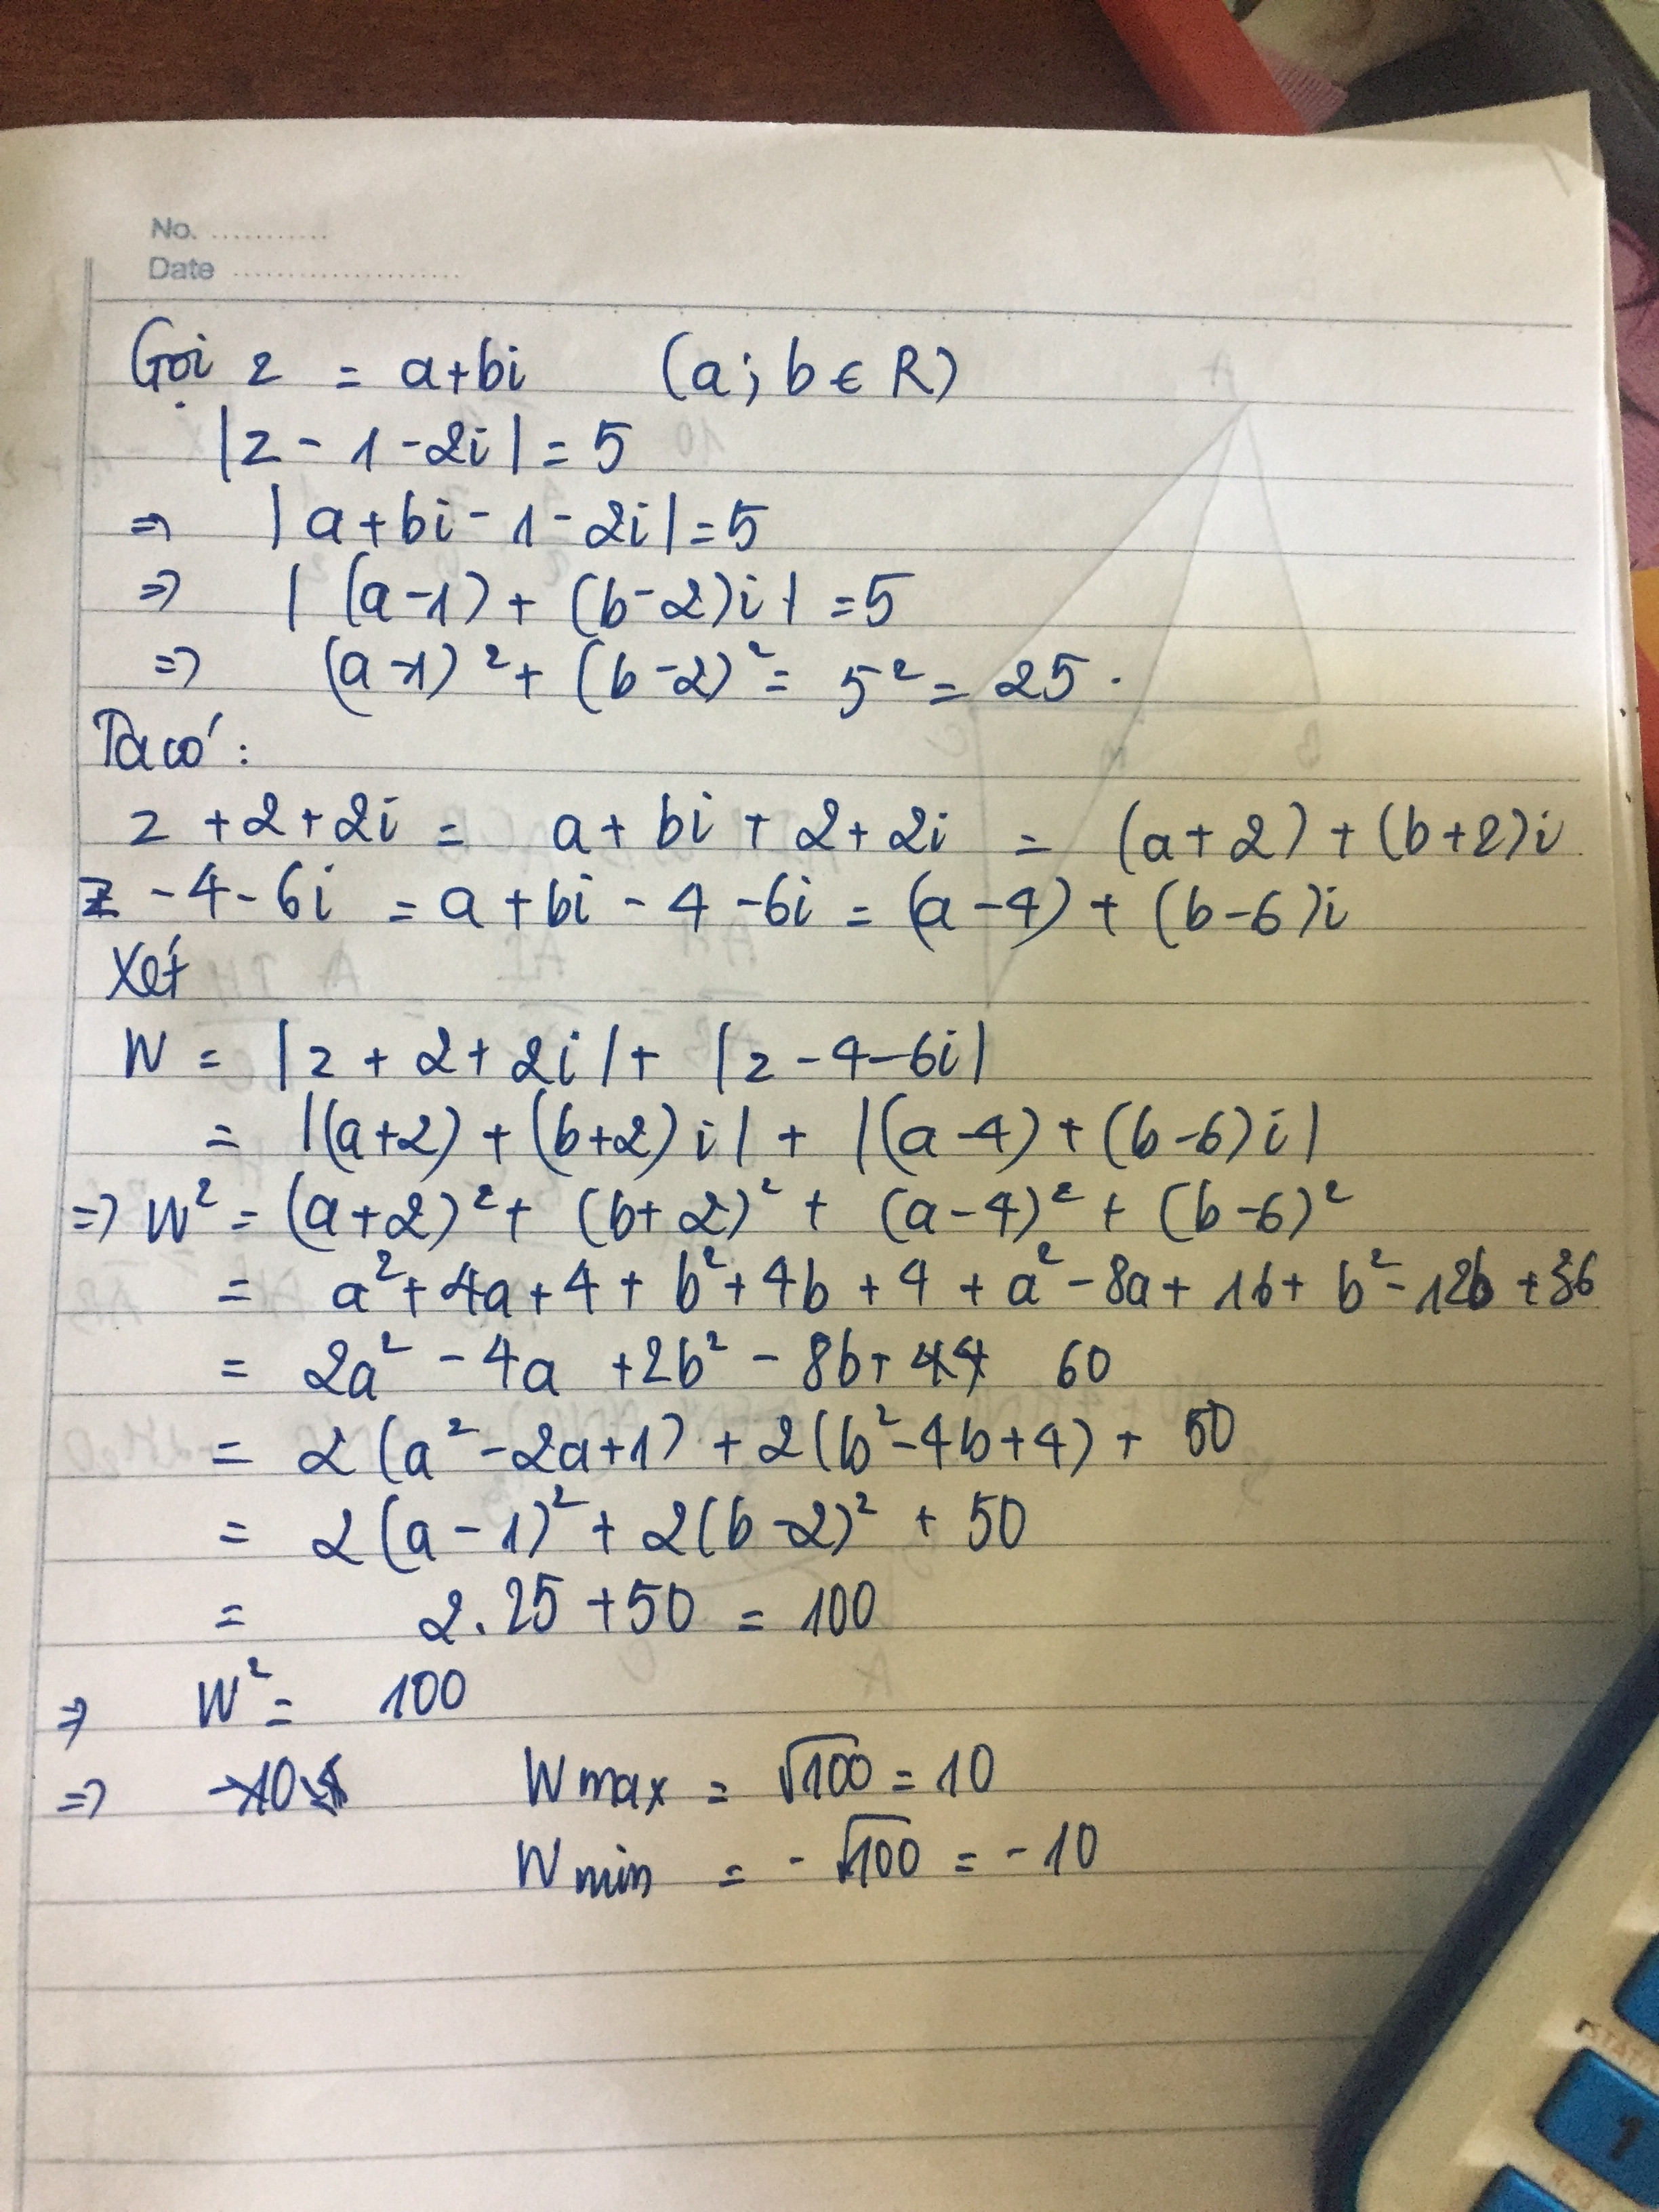 No. ...........
Date .....................
Gọi z = a+bi (a; b ∈ R)
|z - 1 - 2i| = 5
=> |a+bi - 1 - 2i| = 5
=> |(a-1) + (b-2)i| = 5
=> (a-1)² + (b-2)² = 5² = 25.
Ta có:
z + 2 + 2i = a + bi + 2 + 2i = (a+2) + (b+2)i
z - 4 - 6i = a + bi - 4 - 6i = (a-4) + (b-6)i
Xét
W = |z + 2 + 2i| + |z - 4 - 6i|
= |(a+2) + (b+2)i| + |(a-4) + (b-6)i|
=> W² = (a+2)² + (b+2)² + (a-4)² + (b-6)²
= a² + 4a + 4 + b² + 4b + 4 + a² - 8a + 16 + b² - 12b + 36
= 2a² - 4a + 2b² - 8b + 60
= 2(a² - 2a + 1) + 2(b² - 4b + 4) + 50
= 2(a-1)² + 2(b-2)² + 50
= 2.25 + 50 = 100
=> W² = 100
=> W max = √100 = 10
W min = - √100 = - 10
1